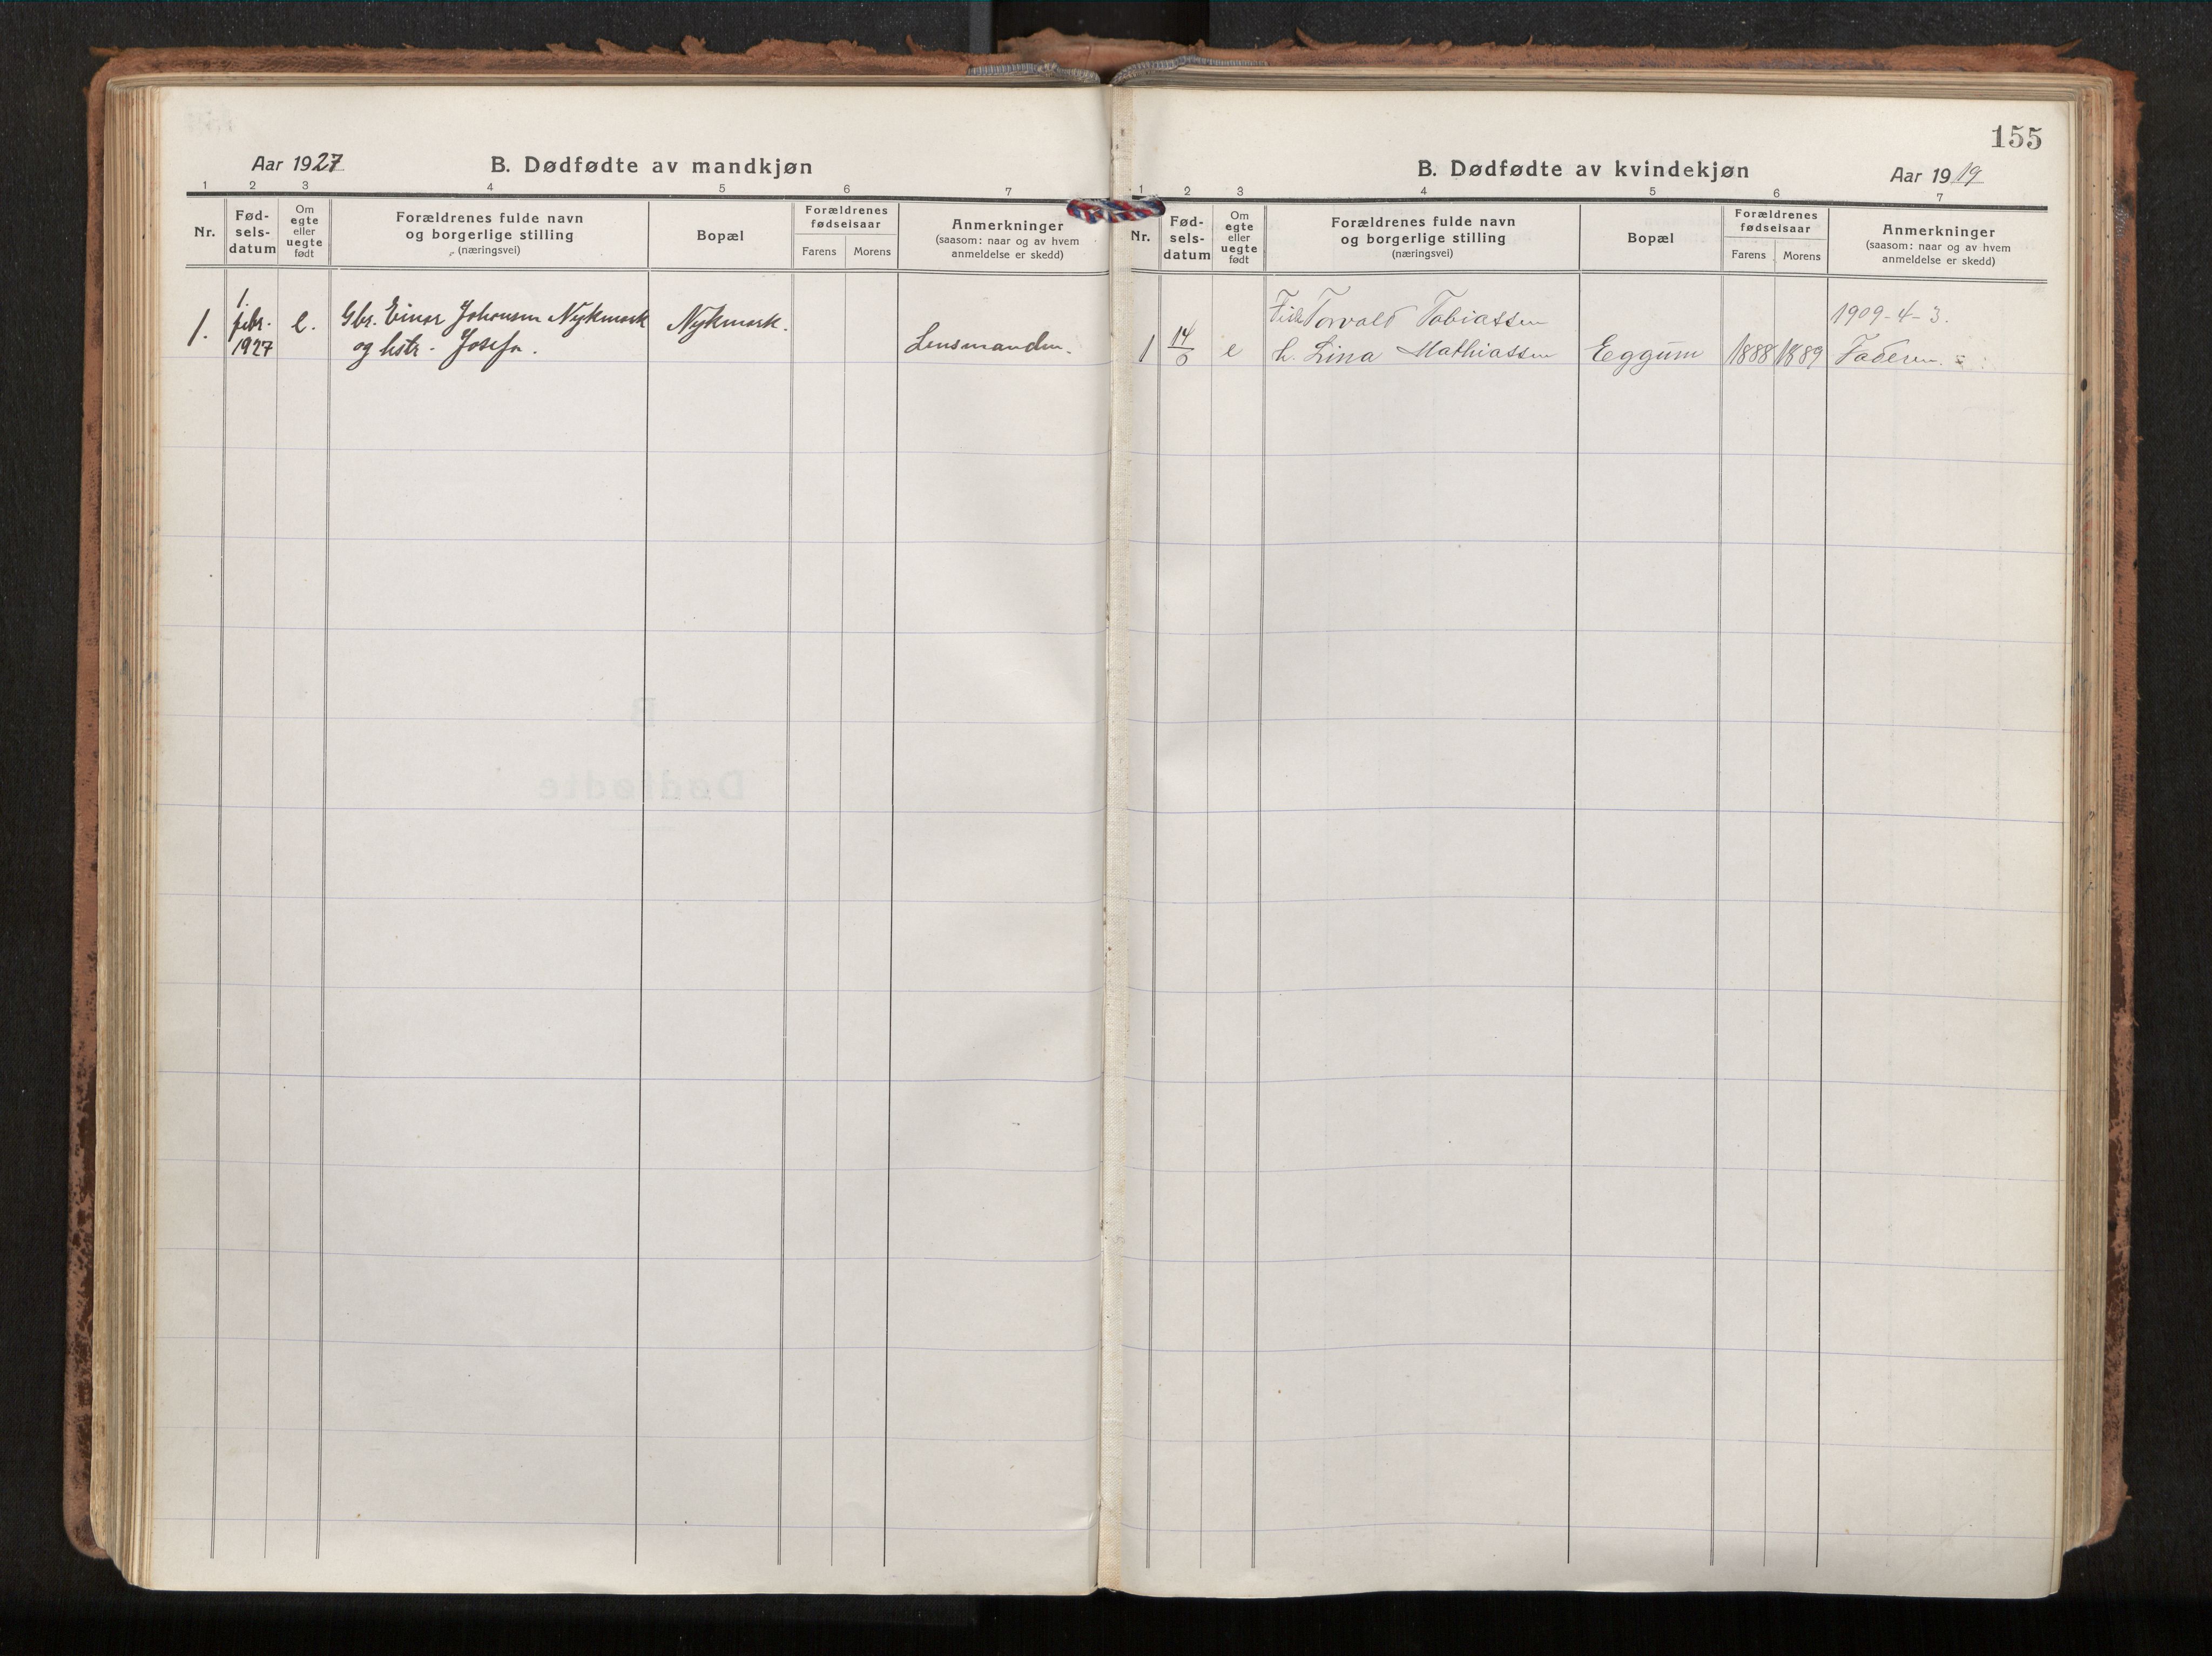 Aar 1927
B. Dødfødte av mandkjøn
1 2 3 4 5 6 7
Nr.
Fød-
sels-
datum
Om
egte
eller
uegte
født
Forældrenes fulde navn
og borgerlige stilling
(næringsvei)
Bopæl
Forældrenes
fødselsaar
Farens Morens
Anmerkninger
(saasom: naar og av hvem
anmeldelse er skedd)
1.
1.
febr.
1927
e.
Gbr. Einar Johansen Nykmark
og hstr. Josefa.
Nykmark.
Lensmanden.
155
B. Dødfødte av kvindekjøn
Aar 1919
1 2 3 4 5 6 7
Nr.
Fød-
sels-
datum
Om
egte
eller
uegte
født
Forældrenes fulde navn
og borgerlige stilling
(næringsvei)
Bopæl
Forældrenes
fødselsaar
Farens Morens
Anmerkninger
(saasom: naar og av hvem
anmeldelse er skedd)
1
14
e
Fisk Torvald Tobiassen
h. Lina Mathiassen
Eggum
1888 1889
1909-4-3.
Faderen.
B
Dødfødte